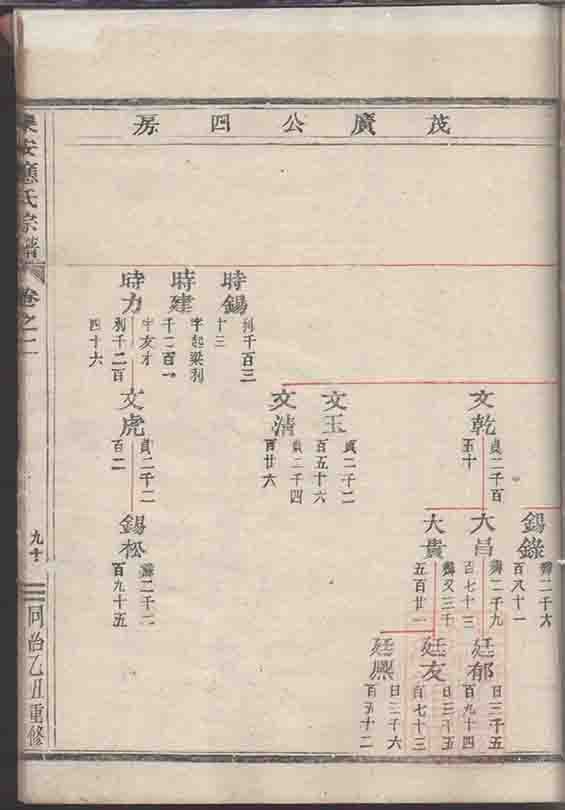 茂廣公四房
時錫
利千百三
十三
時建
字起梁利
千二百一
時力
字友才
利千二百
四十六
文乾
貞二千百
五十
文玉
貞二千二
百五十六
文清
貞二千四
百廿六
文虎
貞二千二
百二
錫錄
百八十一
大昌
百七十三
大貴
五百廿一
錫松
百九十五
廷郁
日三千五
百九十四
廷友
日三千五
百七十三
廷熙
日三千六
百五十二
樂安應氏宗譜
卷之二
九十
同治乙丑重修